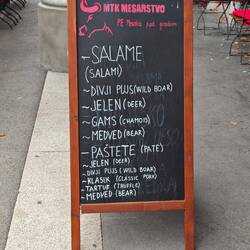 MTK MESARSTVO
PE Mesnica pod gradom
-SALAME
(SALAMI)
~DIVJI PUJS (WILD BOAR)
~JELEN (DEER)
~GAMS (CHAMOIS)
~MEDVED (BEAR)
-PAŠTETE (PATE)
~JELEN (DEER)
~DIVJI PUJS (WILD BOAR)
~KLASIK (CLASSIC PORK)
~TARTUF (TRUFFLE)
~MEDVED (BEAR)